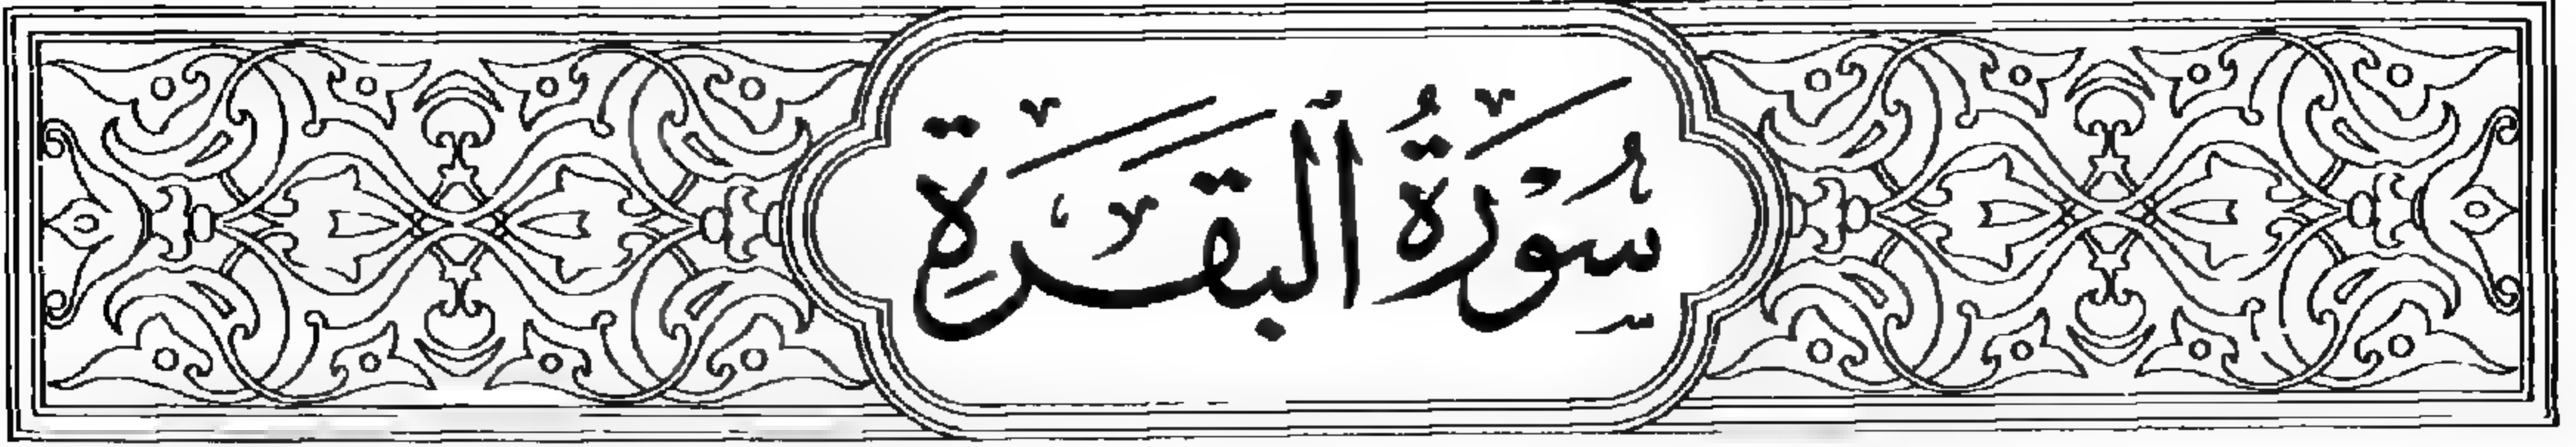 سُورَةُ ٱلْبَقَرَةِ